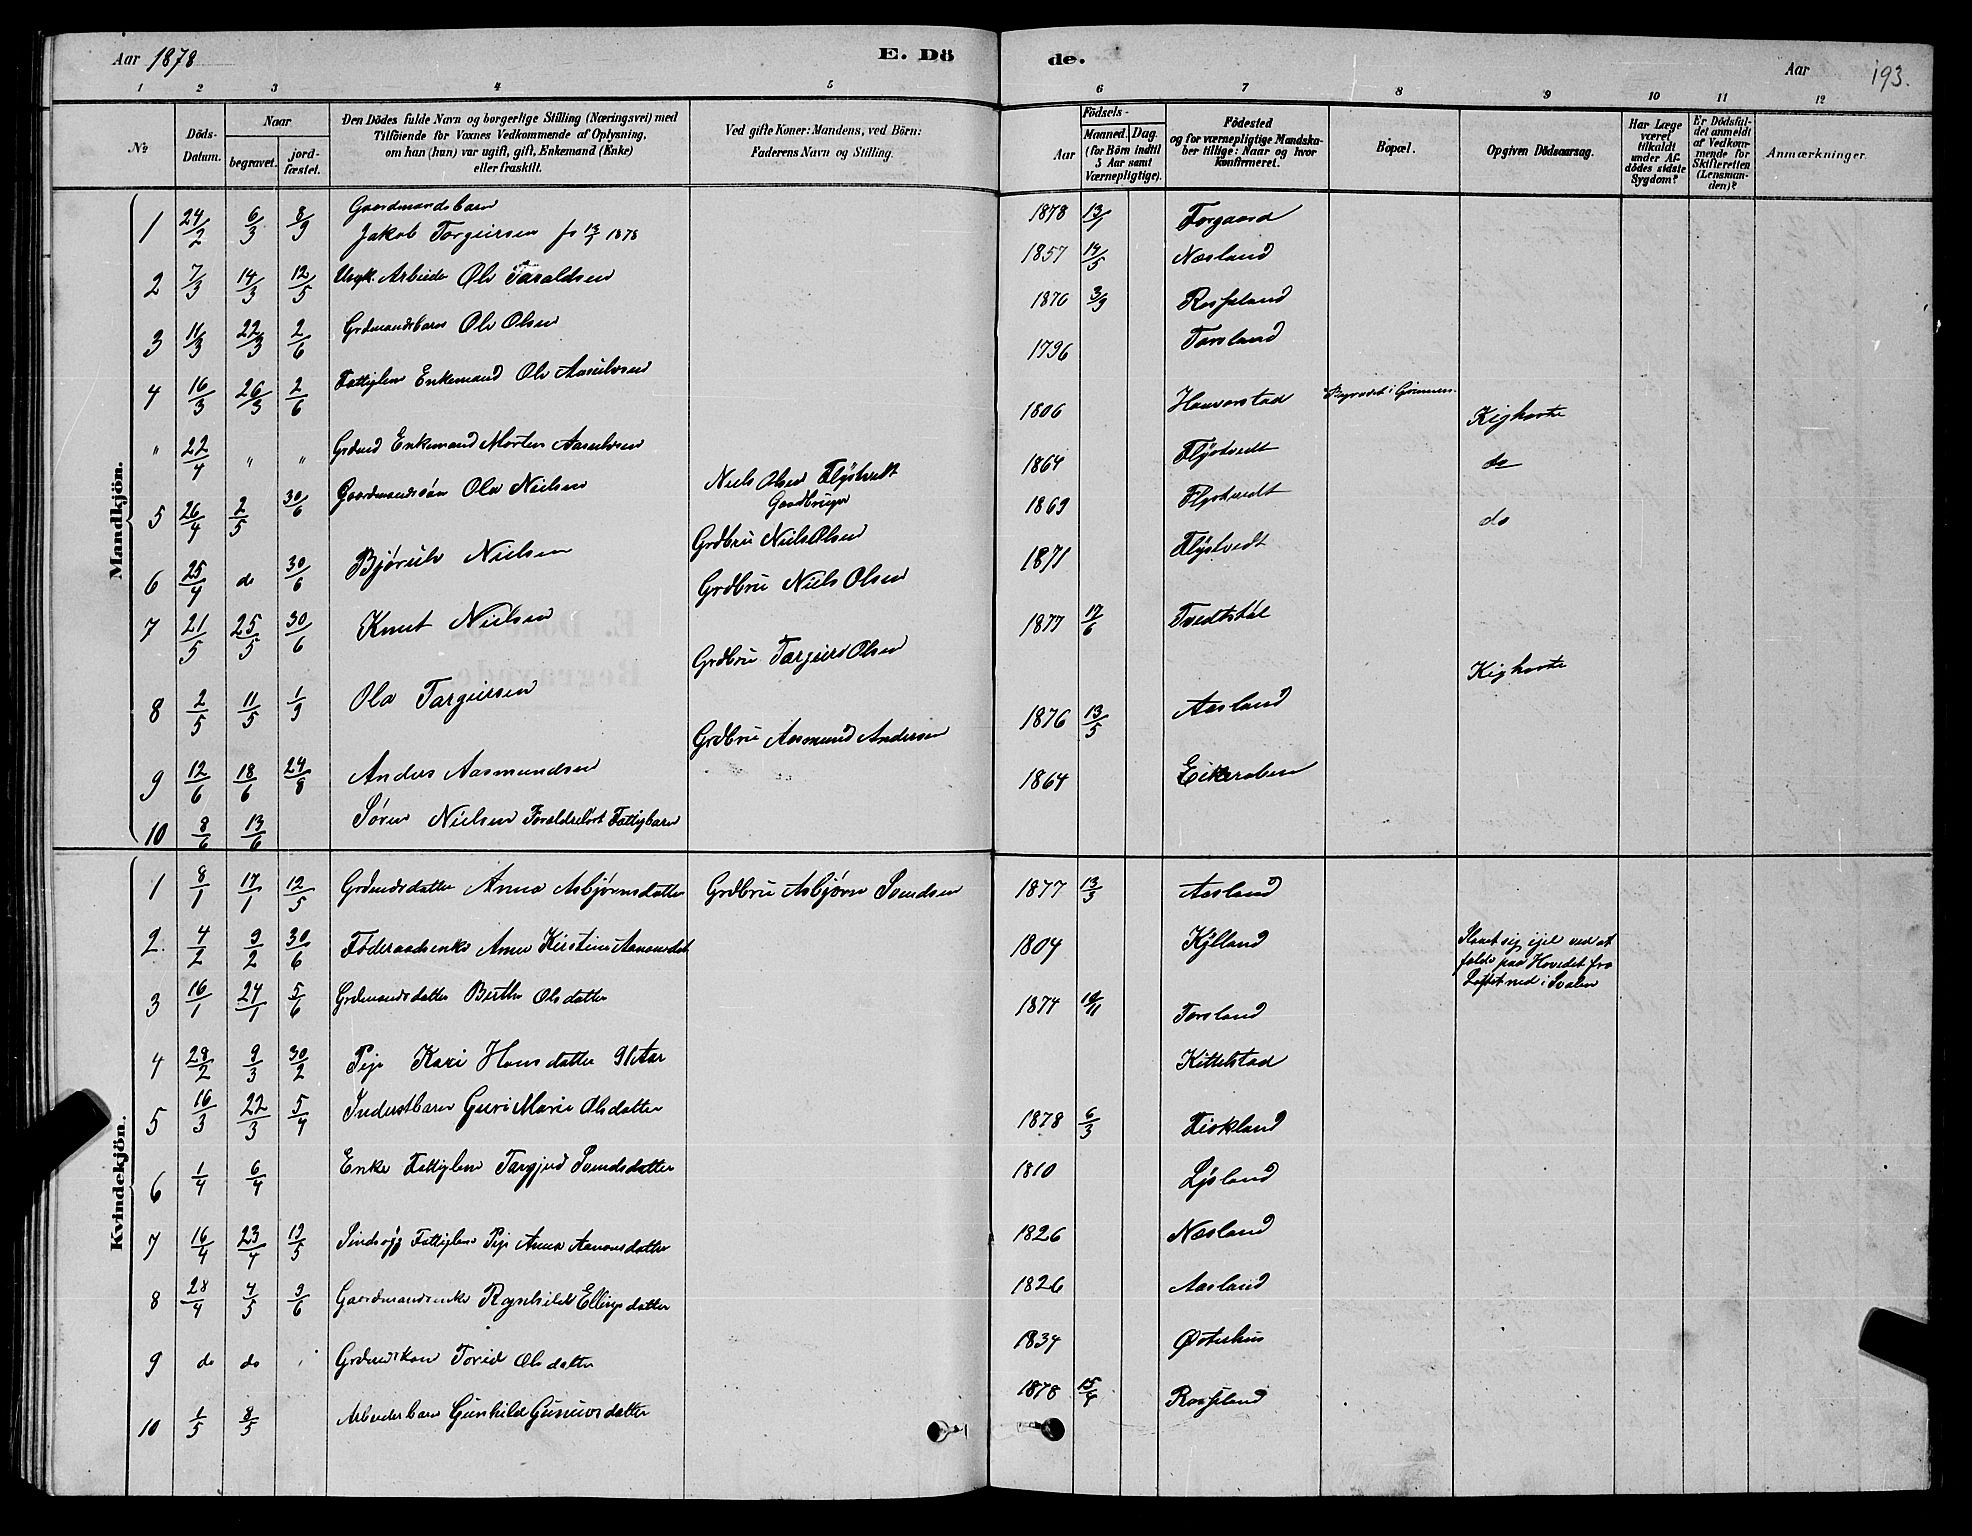 Aar 1878
E. Dö
de.
Aar
193.
1 2 3 4 5 6 7 8 9 10 11 12
No
Döds-Datum.
Naar
begravet.
jord-fæstet.
Den Dödes fulde Navn og borgerlige Stilling (Næringsvei) med
Tilföiende for Voxnes Vedkommende af Oplysning,
om han (hun) var ugift, gift, Enkemand (Enke)
eller fraskilt.
Ved gifte Koner: Mandens, ved Börn:
Faderens Navn og Stilling.
Födsels-
Aar
Maaned. Dag.
(for Börn indtil
5 Aar samt
Værnepligtige).
Födested
og for værnepligtige Mandska-
ber tillige: Naar og hvor
konfirmeret.
Bopæl.
Opgiven Dödsaarsag.
Har Læge
været
tilkaldt
under Af-
dödes sidste
Sygdom?
Er Dödsfal-
det anmeldt
af Vedkom-
mende for
Skifteretten
(Lensman-
den)?
Anmærkninger.
Mandkjön.
1 24/2 6/3 8/9 Gaardmandsbarn
Jakob Torgeirsen fø 13/1 1878 1878 13/1 Torgaard
2 7/3 14/3 12/5 Ungk. Arbeider Ole Taraldsen 1857 14/5 Næsland
3 11/3 22/3 2/6 Grdmandsbarn Ole Olsen 1876 3/9 Rosseland
4 16/3 26/3 2/6 Fattiglem Enkemand Ole Aasulvsen 1796 Torsland
" 22/4 " " Grdmd Enkemand Morten Aasulvsen 1806 Haverstad Begravet i
5 26/4 2/5 30/6 Gaardmandssøn Ola Nielsen Niels Olsen Flystvedt
Gaardbruger 1864 Flystvedt Kighoste
6 25/4 do 30/6 Bjørulv Nielsen Grdbru Niels Olsen 1869 Flystvedt do
7 21/5 25/5 30/6 Knut Nielsen Grdbru Niels Olsen 1871 Flystvedt do
8 2/5 11/5 1/9 Ola Targeirsen Grdbru Targeirs Olsen 1877 17/6 Tvedtstøl
9 12/6 18/6 24/8 Anders Aasmundsen Grdbru Aasmund Andersen 1876 13/5 Aasland Kighoste
10 8/6 13/6 Søren Nielsen Forældreløst Fattigbarn 1864
Kvindekjön.
1 8/1 17/1 12/5 Grdmdsdatter Anna Asbjørnsdatter Grdbru Asbjørn Svendsen 1877 13/3 Aasland
2. 4/2 9/2 30/6 Føderaadsenke Anne Kirstine Aanonsdat 1804 Kylland Slaaet sig ijel ved at
falde paa Hovedet fra
Loftet ned i Svalen
3 16/1 24/1 5/6 Grdmandsdatter Berthe Olsdatter 1874 10/11 Torsland
4 28/2 9/3 30/2 Pige Kari Hansdatter 91 Aar Kittelstad
5 16/3 22/3 5/4 Inderstbarn Guri Marie Olsdatter 1878 6/3 Fiskland
6 1/4 6/4 Enke Fattiglem Targjerd Svendsdatter 1810 Lysland
7 16/4 23/4 19/5 Sindsyg Fattiglem Pige Anna Aanonsdatter 1826 Næsland
8 28/4 4/5 9/6 Gaardmandsenke Ragnhild Ellingsdatter 1826 Aasland
9 do do Grdmdskone Torid Olsdatter 1834 Østerhus
10 1/5 8/5 Arbeiderbarn Gunhild Gunuvsdatter 1878 15/4 Rosseland